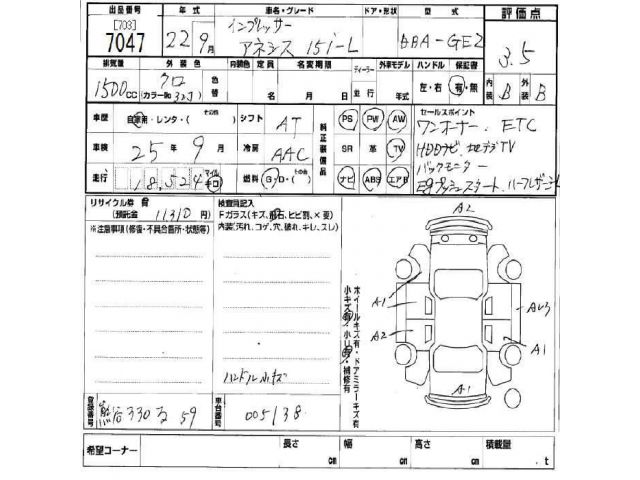 出品番号 年式 車名・グレード ドア・形状 型式 評価点
[703]
7047 22年9月 インプレッサー アネシス 15i-L DBA-GE2 3.5
排気量 外装色 内装色 定員 名変期限 ディーラー 外車モデル ハンドル 保証書 内装 外装
1500cc クロ (カラーNo 32J) 色替 年 月 日 並行 年式 左・右 有・無 B B
車歴 自家用・レンタ・( その他 ) シフト AT 純正装備品 PS PW AW セールスポイント
ワンオーナー、ETC
車検 25年9月 冷房 AAC SR 革 TV HDDナビ 地デジTV
バックモニター
走行 18,524 マイル キロ 燃料 G・D・(その他) ナビ ABS エアB
リサイクル券 有 (預託金 11310円)
検査員記入
Fガラス(キズ、飛石、ヒビ割、×要)
内装(汚れ、コゲ、穴、破れ、キレ、スレ)
※注意事項(修復・不具合箇所・状態等)
ホイールキズ有・ドアミラーキズ有
小キズ有・小凹有・補修有
A2
A1
A2
AU3
A1
A1
ハンドル小キズ
登録番号 熊谷 330 る 59 車台番号 005138
希望コーナー 長さ cm 幅 cm 高さ cm 積載量 .t